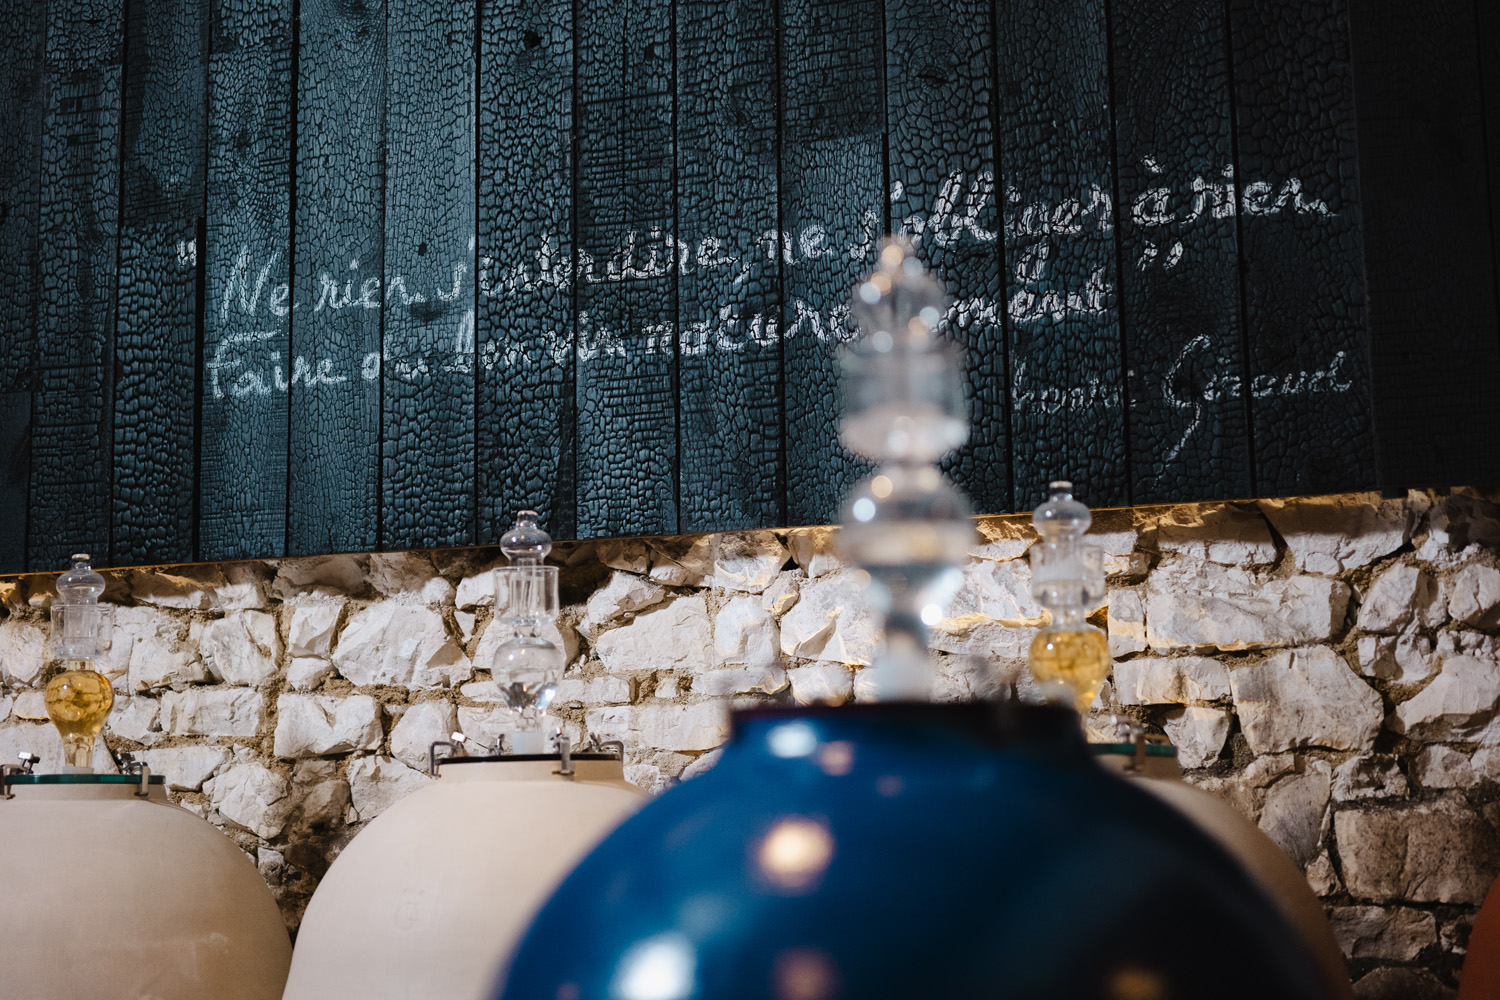 "Ne rien s'interdire, ne s'obliger à rien
Faire du bon vin naturellement"
Henri Giraud